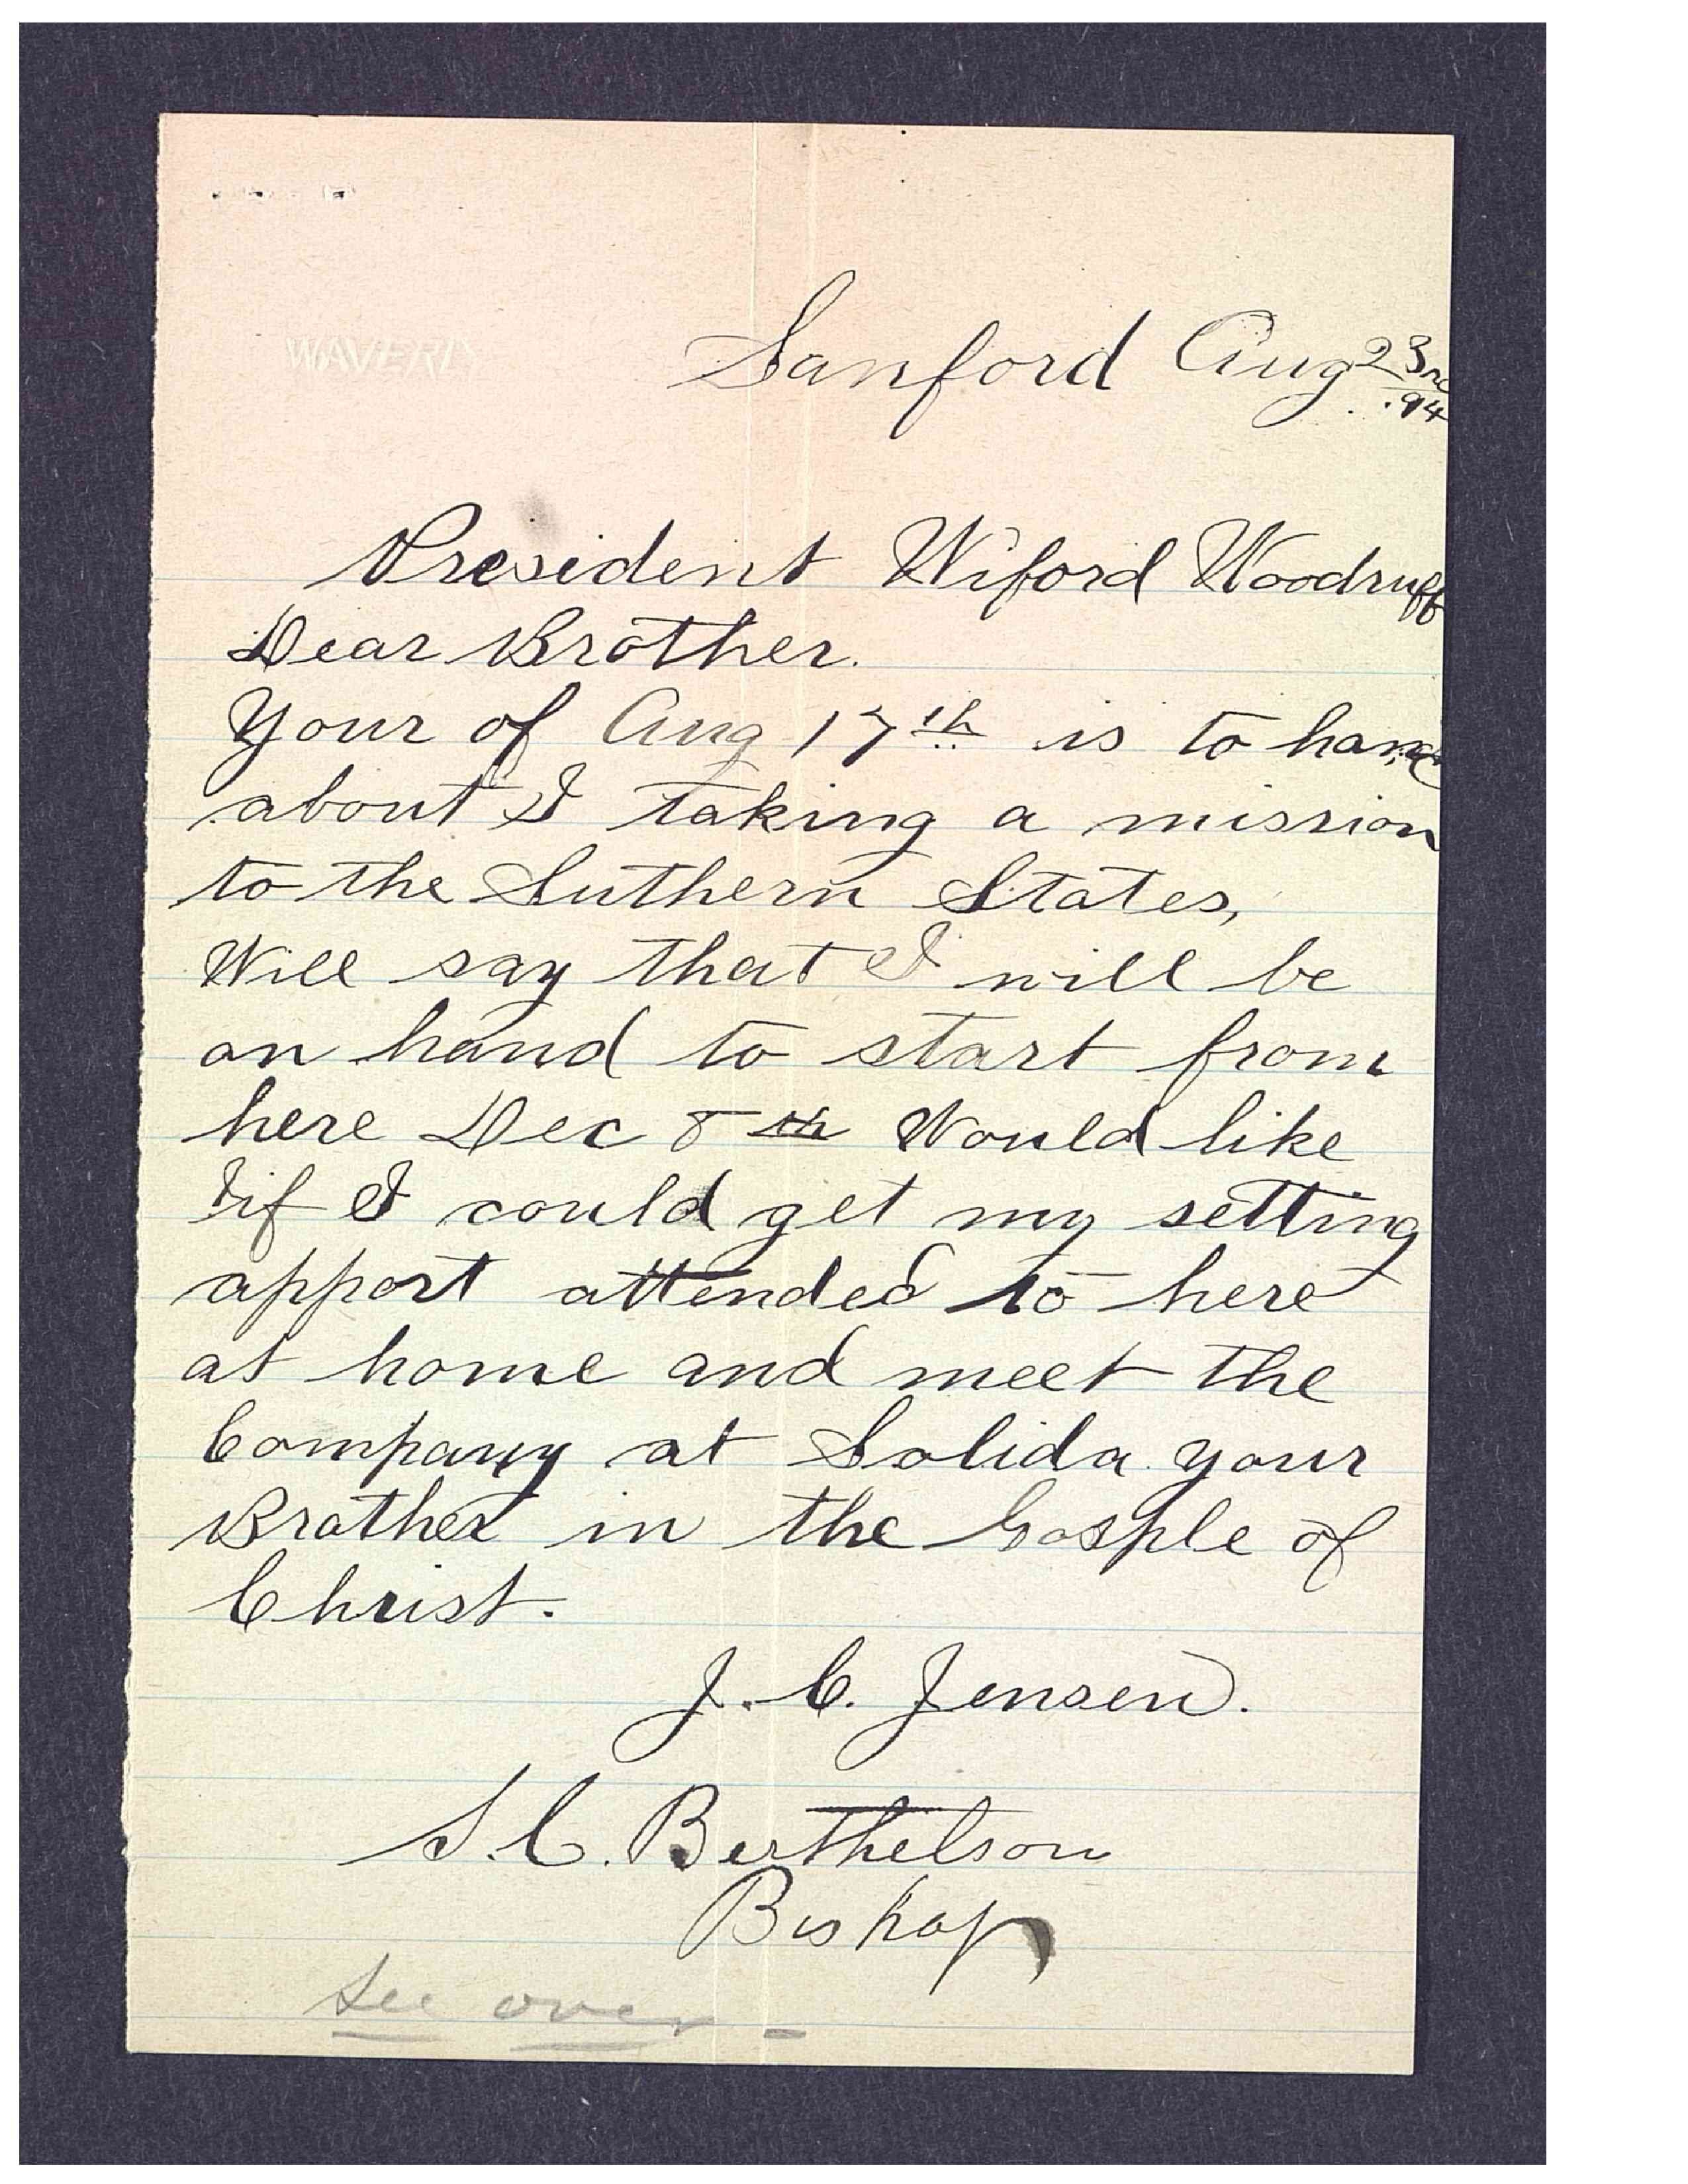 WAVERLY
Sanford Aug 23rd
.94
President Wiford Woodruff
Dear Brother.
Your of Aug 17th is to hand
about I taking a mission
to the Suthern States,
Will say that I will be
on hand to start from
here Dec 8th Would like
if I could get my setting
apport attended to here
at home and meet the
Company at Solida your
Brother in the Gosple of
Christ.
J. C. Jensen.
S. C. Berthelson
Bishop
See over -